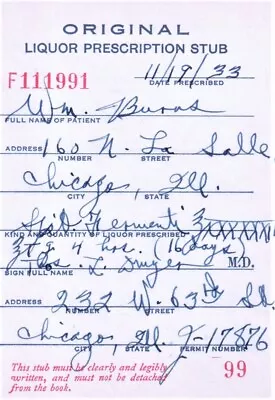 ORIGINAL
LIQUOR PRESCRIPTION STUB
F111991 11/19/33
DATE PRESCRIBED
Wm. Burns
FULL NAME OF PATIENT
ADDRESS 160 N. La Salle
NUMBER STREET
Chicago, Ill.
CITY STATE
Spt Fermenti
KIND AND QUANTITY OF LIQUOR PRESCRIBED
4 hrs. 16 days
L. Dwyer M.D.
SIGN FULL NAME
ADDRESS 232 W. 63rd St.
NUMBER STREET
Chicago, Ill. 17876
CITY STATE PERMIT NUMBER
This stub must be clearly and legibly
written, and must not be detached
from the book.
99